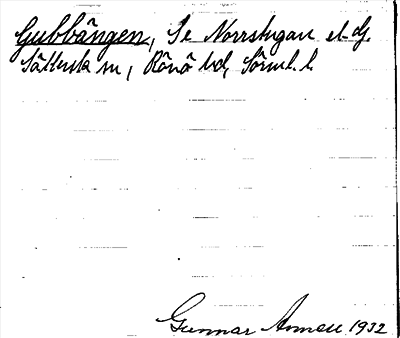 Gubbängen, Se Norrstugan el. dj.
Sättersta sn, Rönö hd, Sörml. l.
Gunnar Annell 1932